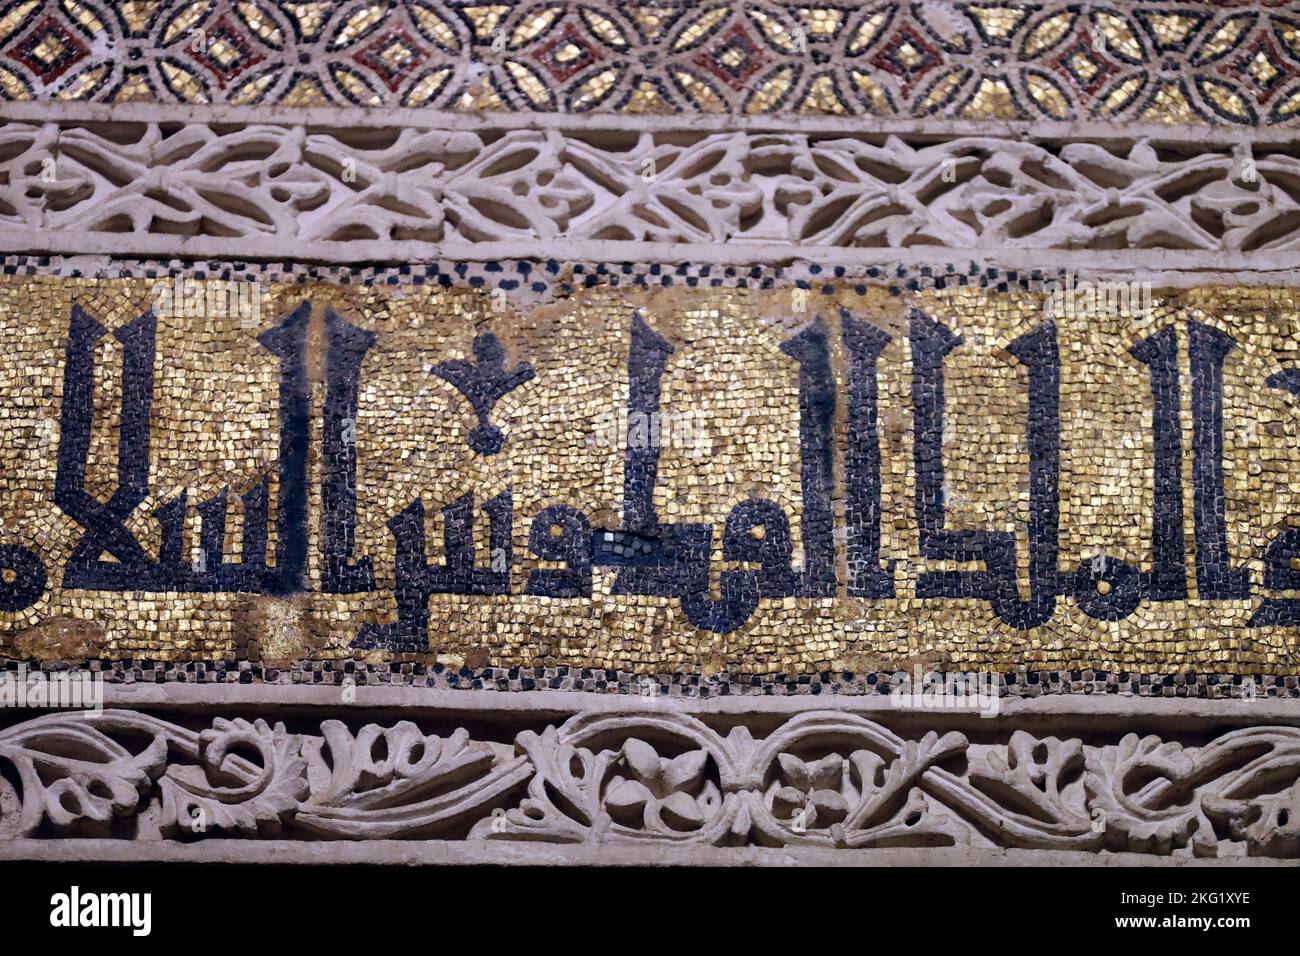 و الملك القدوس السلام
alamy
Image ID: 2KG1XYE
www.alamy.com